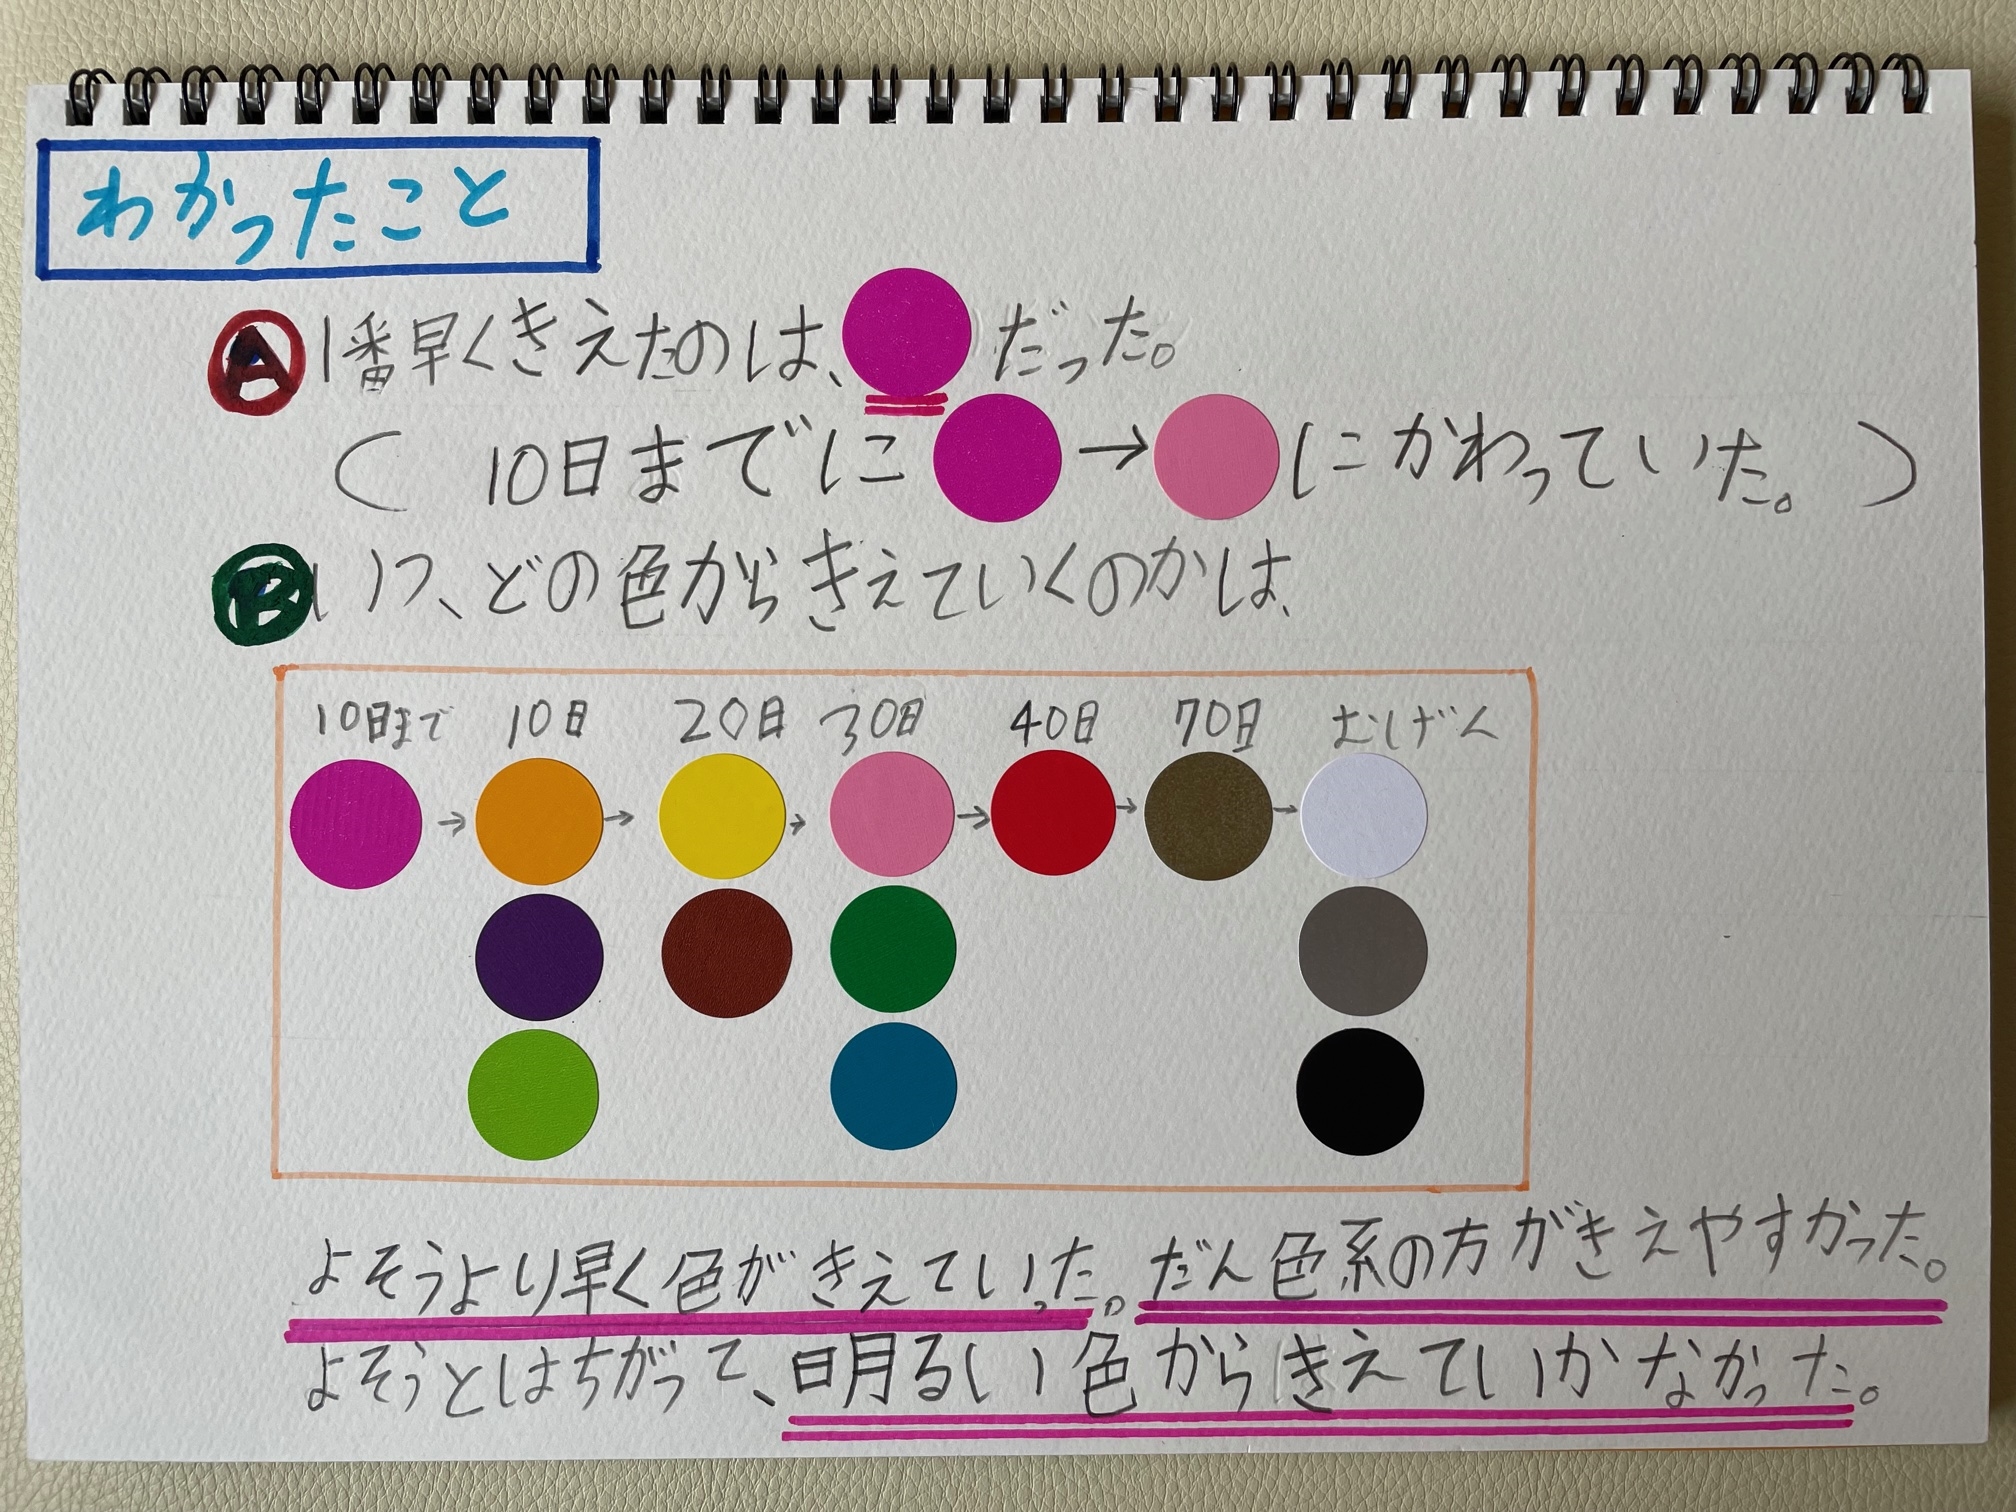 わかったこと
A 1番早くきえたのは、だった。
(10日までに→にかわっていた。)
B いつ、どの色からきえていくのかは、
10日まで 10日 20日 30日 40日 70日 むげん
→ → → → → →
よそうより早く色がきえていった。だん色系の方がきえやすかった。
よそうとはちがって、明るい色からきえていかなかった。